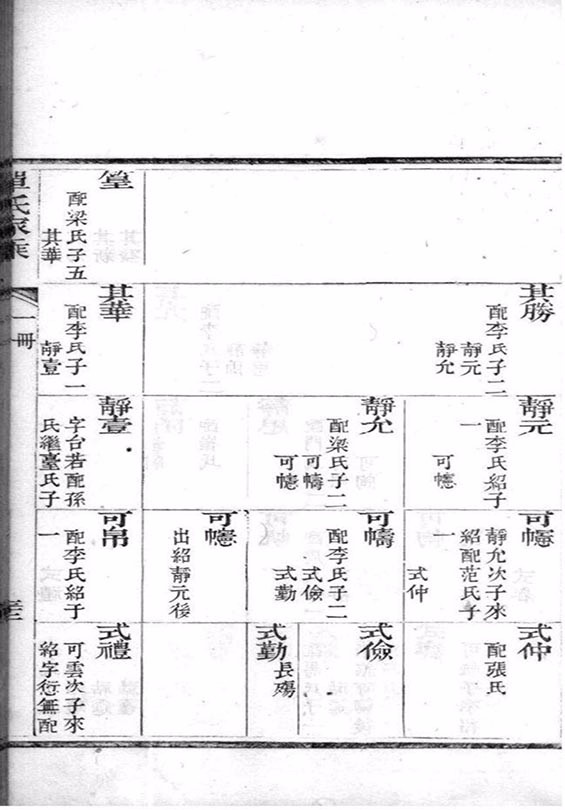 堂
配梁氏子五
其華
其勝
配李氏子二
靜元
靜允
其華
配李氏子一
靜壹
靜元
配李氏紹子
一
可幰
靜允
配梁氏子二
可幬
可幰
靜壹
字台若配孫
氏繼臺氏子
可幰
靜允次子來
紹配范氏子
一
式仲
可幬
配李氏子二
式儉
式勤
可幰
出紹靜元後
可帛
配李氏紹子
一
式仲
配張氏
式儉
式勤
長殤
式禮
可雲次子來
紹字衍無配
氏家乘
一冊